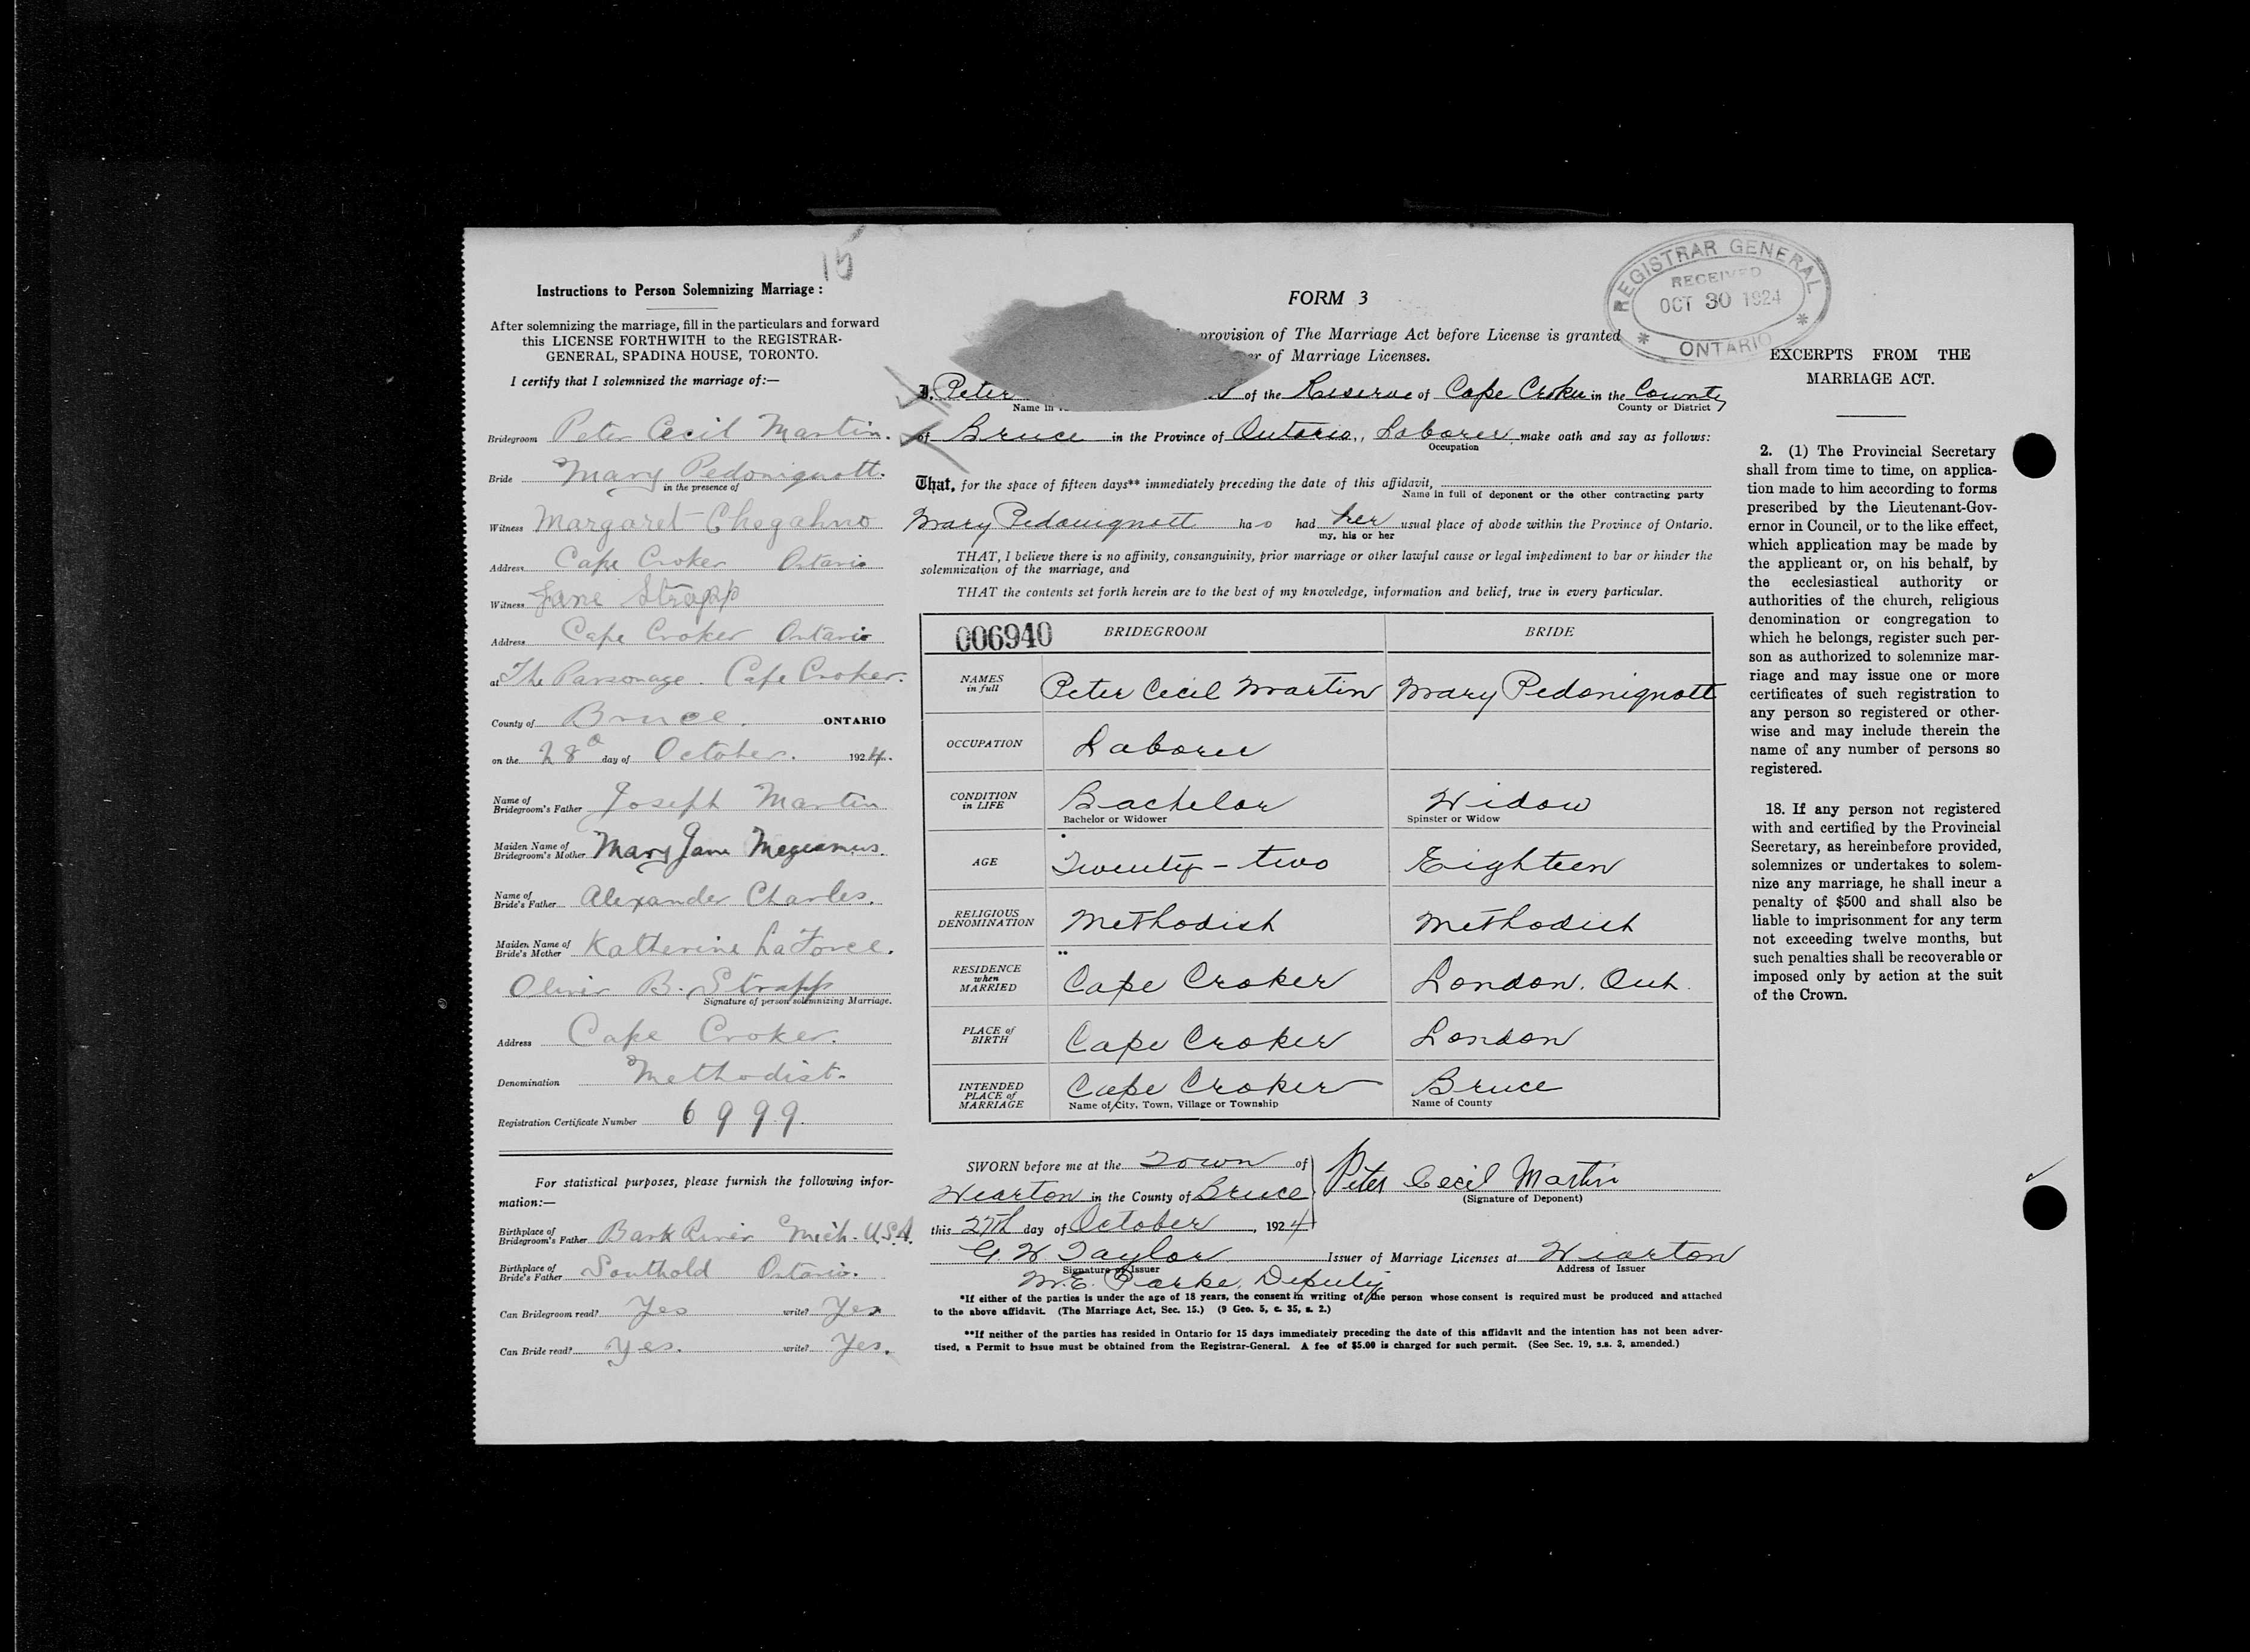 15
Instructions to Person Solemnizing Marriage :
After solemnizing the marriage, fill in the particulars and forward
this LICENSE FORTHWITH to the REGISTRAR-
GENERAL, SPADINA HOUSE, TORONTO.
I certify that I solemnized the marriage of:—
Bridegroom Peter Cecil Martin.
Bride Mary Pedoniquott.
in the presence of
Witness Margaret Chegahno
Address Cape Croker Ontario
Witness Jane Strapp
Address Cape Croker Ontario
at The Parsonage. Cape Croker.
County of Bruce. ONTARIO
on the 28 day of October. 1924.
Name of
Bridegroom's Father Joseph Martin
Maiden Name of
Bridegroom's Mother Mary Jane
Name of
Bride's Father Alexander Charles.
Maiden Name of
Bride's Mother Katherine LaForce.
Oliver B. Strapp
Signature of person solemnizing Marriage.
Address Cape Croker.
Denomination Methodist.
Registration Certificate Number 6999.
For statistical purposes, please furnish the following infor-
mation:—
Birthplace of
Bridegroom's Father Bark River Mich. U.S.A.
Birthplace of
Bride's Father Southold Ontario.
Can Bridegroom read? Yes write? Yes
Can Bride read? Yes. write? Yes.
FORM 3
provision of The Marriage Act before License is granted
of Marriage Licenses.
I, Peter of the Reserve of Cape Croker in the County
Name in County or District
of Bruce in the Province of Ontario, Laborer make oath and say as follows:
Occupation
That, for the space of fifteen days** immediately preceding the date of this affidavit,
Name in full of deponent or the other contracting party
Mary Pedoniquott has had her usual place of abode within the Province of Ontario.
my, his or her
THAT, I believe there is no affinity, consanguinity, prior marriage or other lawful cause or legal impediment to bar or hinder the
solemnization of the marriage, and
THAT the contents set forth herein are to the best of my knowledge, information and belief, true in every particular.
006940 BRIDEGROOM BRIDE
NAMES
in full Peter Cecil Martin Mary Pedoniquott
OCCUPATION Laborer
CONDITION
in LIFE Bachelor Widow
Bachelor or Widower Spinster or Widow
AGE Twenty-two Eighteen
RELIGIOUS
DENOMINATION Methodist Methodist
RESIDENCE
when
MARRIED Cape Croker London. Ont.
PLACE of
BIRTH Cape Croker London
INTENDED
PLACE of
MARRIAGE Cape Croker Bruce
Name of City, Town, Village or Township Name of County
SWORN before me at the Town of
Wiarton in the County of Bruce
this 27th day of October, 1924
Peter Cecil Martin
(Signature of Deponent)
G. W. Taylor Issuer of Marriage Licenses at Wiarton
Signature of Issuer Address of Issuer
M.E. Parke, Deputy
*If either of the parties is under the age of 18 years, the consent in writing of the person whose consent is required must be produced and attached
to the above affidavit. (The Marriage Act, Sec. 15.) (9 Geo. 5, c. 35, s. 2.)
**If neither of the parties has resided in Ontario for 15 days immediately preceding the date of this affidavit and the intention has not been adver-
tised, a Permit to Issue must be obtained from the Registrar-General. A fee of $5.00 is charged for such permit. (See Sec. 19, s.s. 3, amended.)
REGISTRAR GENERAL
RECEIVED
OCT 30 1924
* ONTARIO *
EXCERPTS FROM THE
MARRIAGE ACT.
2. (1) The Provincial Secretary
shall from time to time, on applica-
tion made to him according to forms
prescribed by the Lieutenant-Gov-
ernor in Council, or to the like effect,
which application may be made by
the applicant or, on his behalf, by
the ecclesiastical authority or
authorities of the church, religious
denomination or congregation to
which he belongs, register such per-
son as authorized to solemnize mar-
riage and may issue one or more
certificates of such registration to
any person so registered or other-
wise and may include therein the
name of any number of persons so
registered.
18. If any person not registered
with and certified by the Provincial
Secretary, as hereinbefore provided,
solemnizes or undertakes to solem-
nize any marriage, he shall incur a
penalty of $500 and shall also be
liable to imprisonment for any term
not exceeding twelve months, but
such penalties shall be recoverable or
imposed only by action at the suit
of the Crown.